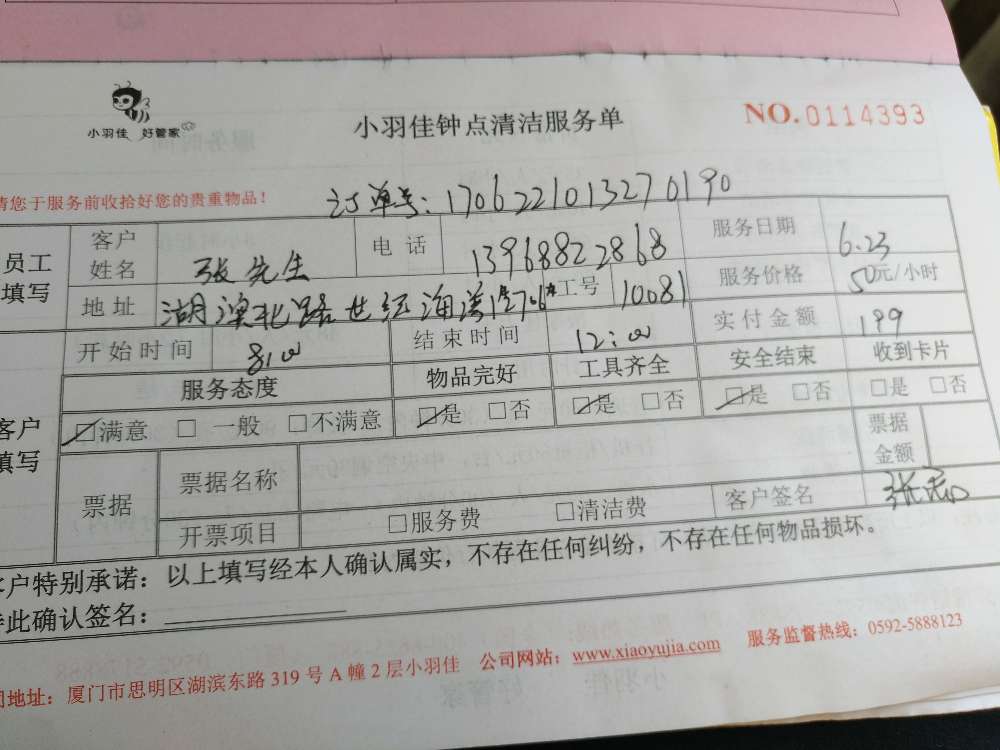 小羽佳 好管家
小羽佳钟点清洁服务单
NO.0114393
请您于服务前收拾好您的贵重物品!
订单号:1706221013270190
员工填写
客户姓名 张先生 电话 13968822868 服务日期 6.23
地址 湖滨北路世纪海湾 706 工号 10081 服务价格 50元/小时
开始时间 8:00 结束时间 12:00 实付金额 199
客户填写
服务态度 物品完好 工具齐全 安全结束 收到卡片
☑满意 □一般 □不满意 ☑是 □否 ☑是 □否 ☑是 □否 □是 □否
票据 票据名称 票据金额
开票项目 □服务费 □清洁费 客户签名 张
客户特别承诺:以上填写经本人确认属实,不存在任何纠纷,不存在任何物品损坏。
此确认签名:
地址:厦门市思明区湖滨东路 319 号 A 幢 2 层小羽佳 公司网站:www.xiaoyujia.com 服务监督热线:0592-5888123